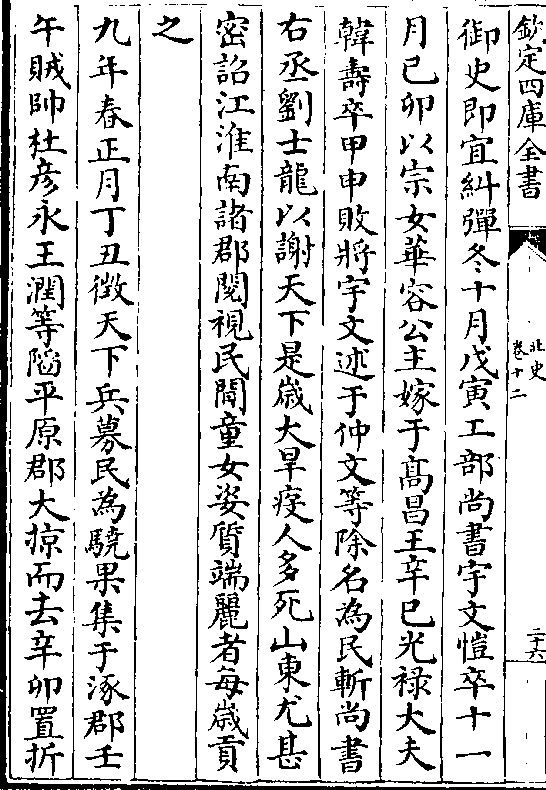 欽定四庫全書
北史
卷十二
二十六
御史即宜糾彈冬十月戊寅工部尚書宇文愷卒十一
月己卯以宗女華容公主嫁于髙昌王辛巳光禄大夫
韓壽卒甲申敗將宇文述于仲文等除名為民斬尚書
右丞劉士龍以謝天下是歲大旱疫人多死山東尤甚
密詔江淮南諸郡閱視民間童女姿質端麗者每歲貢
之
九年春正月丁丑徴天下兵募民為驍果集于涿郡壬
午賊帥杜彦永王潤等陷平原郡大掠而去辛卯置折